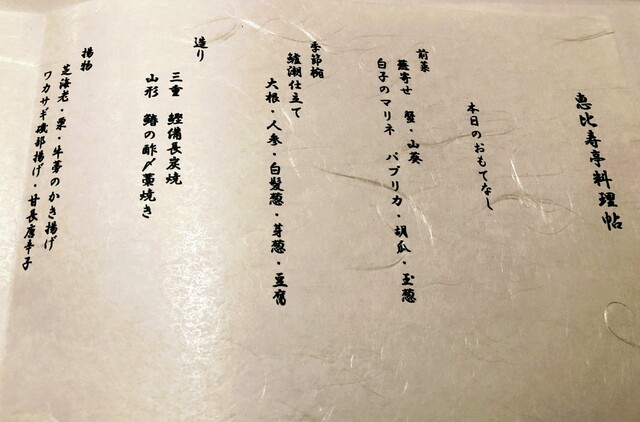 恵比寿亭料理帖
本日のおもてなし
前菜
蕪寄せ 蟹・山葵
白子のマリネ パプリカ・胡瓜・玉葱
季節椀
鱈潮仕立て
大根・人参・白髪葱・芽葱・豆腐
造り
三重 鰹備長炭焼
山形 鰆の酢〆藁焼き
揚物
芝海老・栗・牛蒡のかき揚げ
ワカサギ磯部揚げ・甘長唐辛子